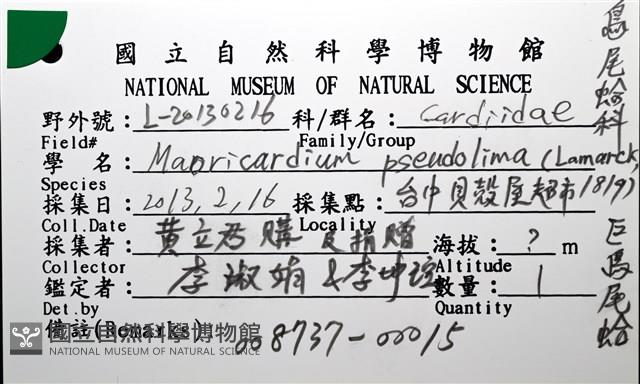 國立自然科學博物館
NATIONAL MUSEUM OF NATURAL SCIENCE
野外號：L-20130216 科/群名：Cardiidae
Field# Family/Group
學 名：Maoricardium pseudolima (Lamarck, 1819)
Species
採集日：2013, 2, 16 採集點：台中貝殼屋超市
Coll.Date Locality
採集者：黃立君 購 及捐贈 海拔：? m
Collector Altitude
鑑定者：李淑娟&李坤瑄 數量：1
Det.by Quantity
備註(Remarks)
008737-00015
鳥尾蛤科 巨鳥尾蛤
國立自然科學博物館
NATIONAL MUSEUM OF NATURAL SCIENCE